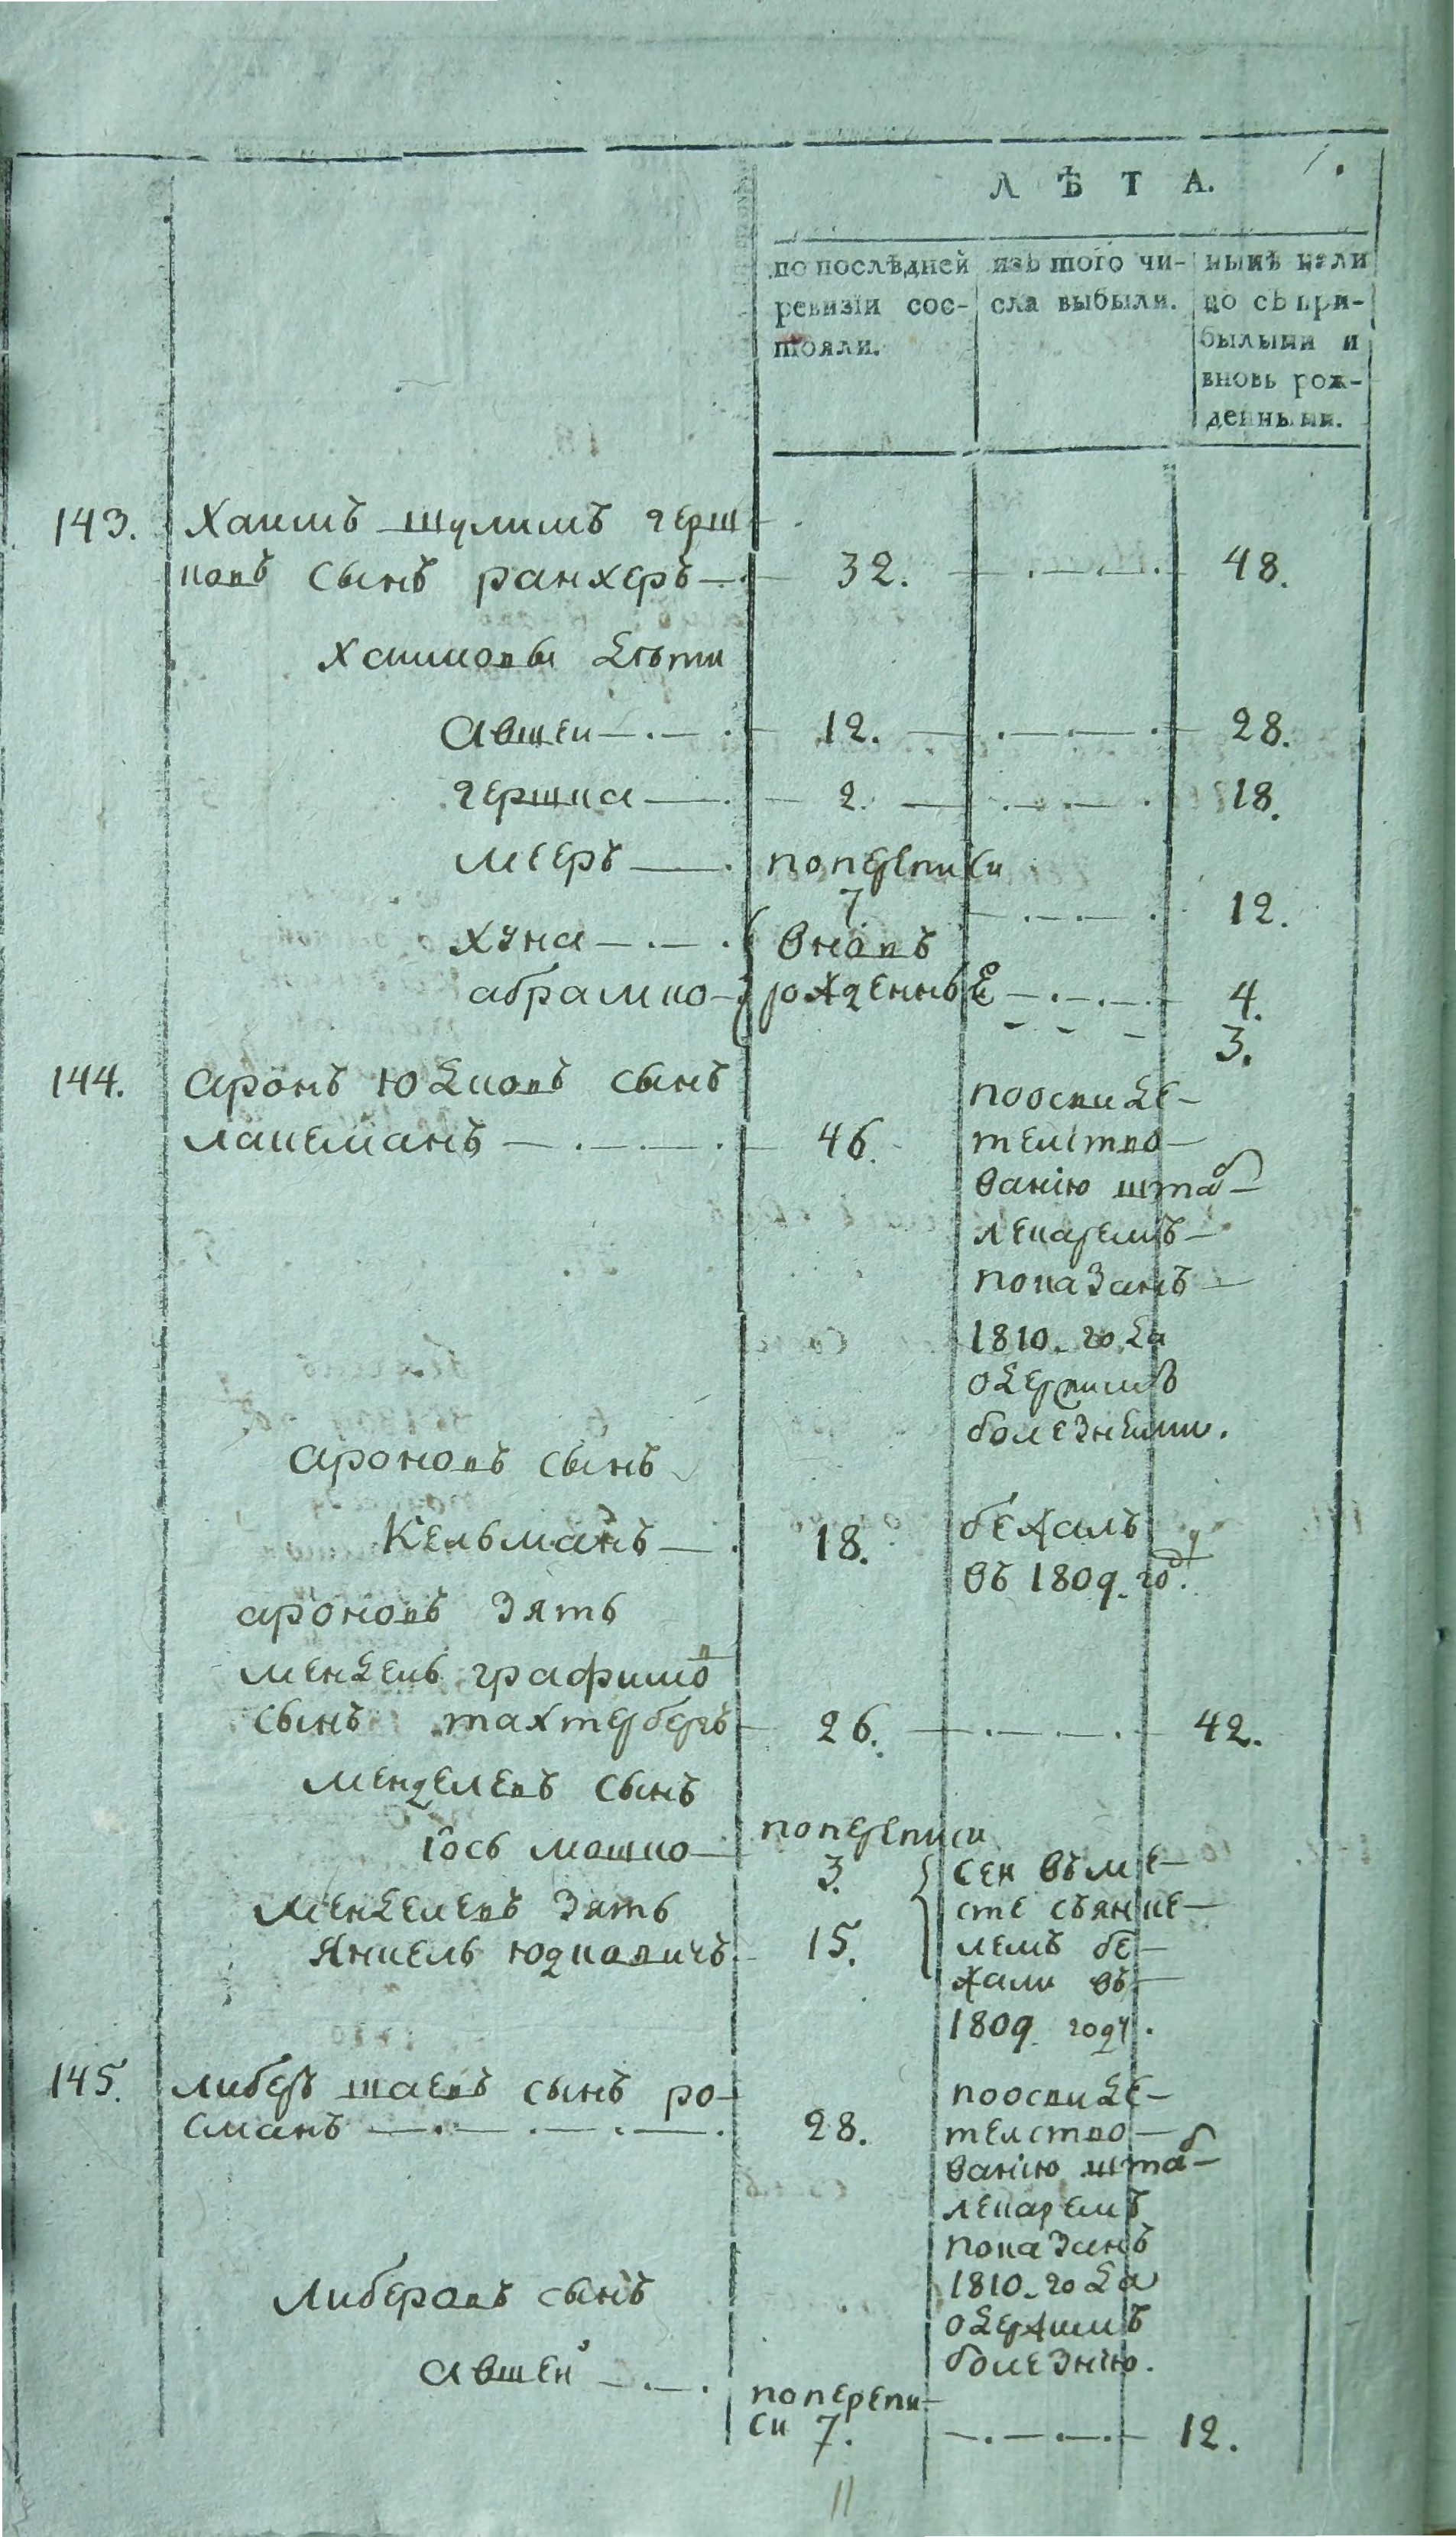 ЛѢТА.
по послѣдней ревизіи сос-тояли.
изъ того чи-сла выбыли.
нынѣ нали цо съ при-былыми и вновь рож-денными.
143. Хаимъ шулимъ герш
ковъ сынъ ранхеръ 32. 48.
Хаимовы дѣти
Авшеи 12. 28.
гершка 2. 18.
Мееръ по переписи
7 12.
хуна вновь
абрамко рожденные 4.
3.
144. аронъ юдковъ сынъ
46.
по освиде-
телство-
ванію штаб
лекаремъ
показанъ
1810. года
одержимъ
болезньми.
Ароновъ сынъ
Кельманъ 18. бежалъ
въ 1809. году.
ароновъ зять
Мендель графимов
сынъ тахтербергъ 26. 42.
Менделевъ сынъ
іось мошко по переписи
3.
Менделевъ зять
Янкель юдковичъ 15.
сеи въме-
сте съянке-
лемъ бе-
жали въ
1809 году.
145. либеръ шаевъ сынъ ро-
сманъ 28.
по освиде-
телство-
ванію штаб
лекаремъ
показанъ
1810. года
одержимъ
болезнію.
Либеровъ сынъ
Авшеи по перепи-
си 7. 12.
11